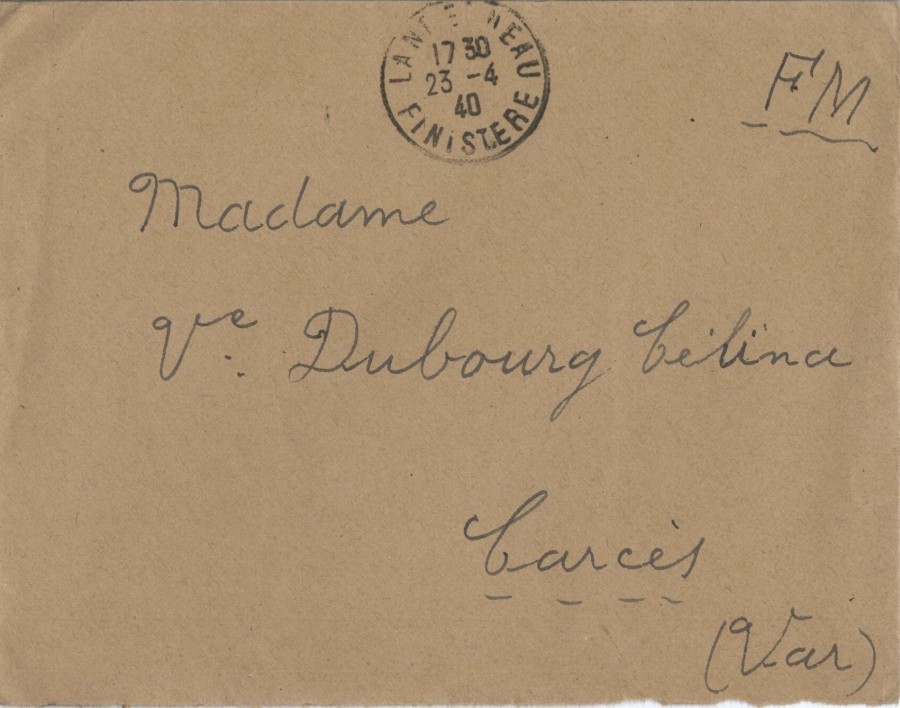 LANDERNEAU
17 30
23 -4
40
FINISTERE
FM
Madame
Vve. Dubourg Célina
Carcès
(Var)